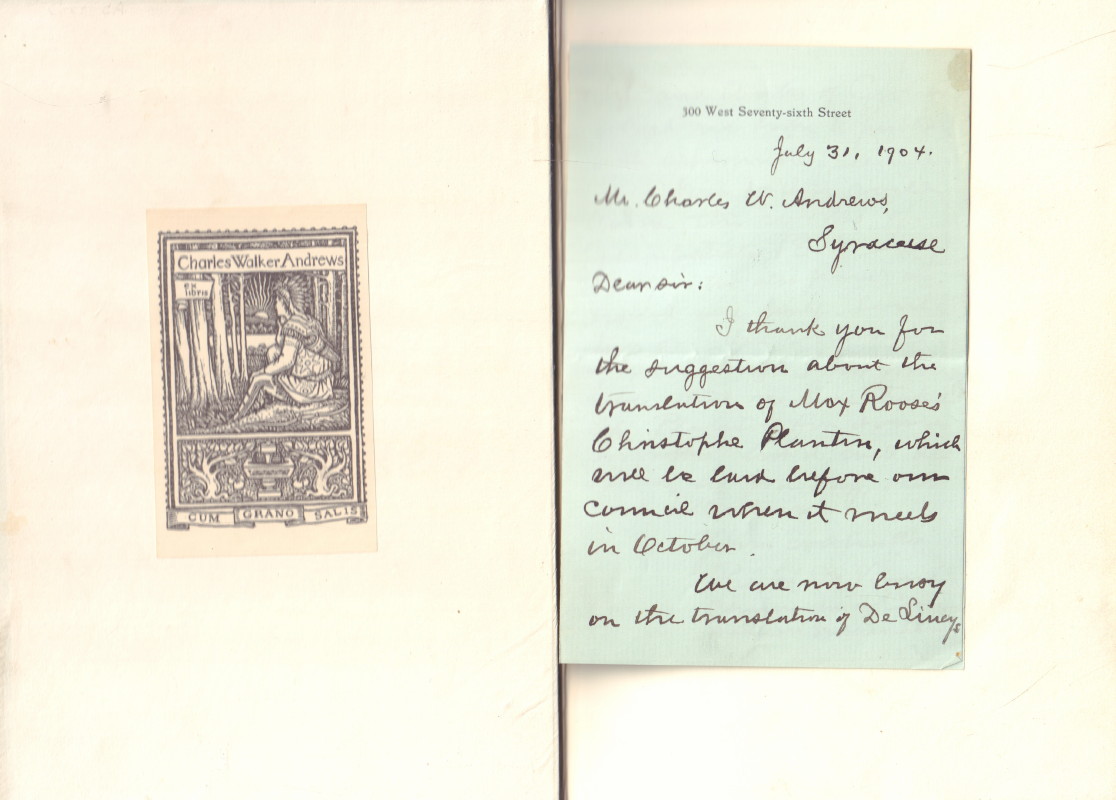 Charles Walker Andrews
EX
LIBRIS
CUM GRANO SALIS
300 West Seventy-sixth Street
July 31, 1904.
Mr. Charles W. Andrews,
Syracuse
Dear sir:
I thank you for
the suggestion about the
translation of Max Rooses
Christophe Plantin, which
will be laid before our
Council when it meets
in October.
We are now busy
on the translation of De Lincy's